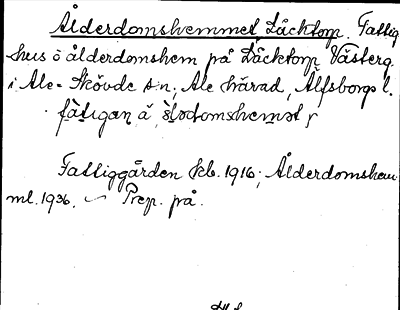 Ålderdomshemmet Läcktorp. Fattig-
hus o ålderdomshem på Läcktorp Västerg.
i Ale-Skövde sn, Ale härad, Älfsborgs l.
Fattiggården kb. 1916; Ålderdomshem
ml. 1936. — Prep. på.